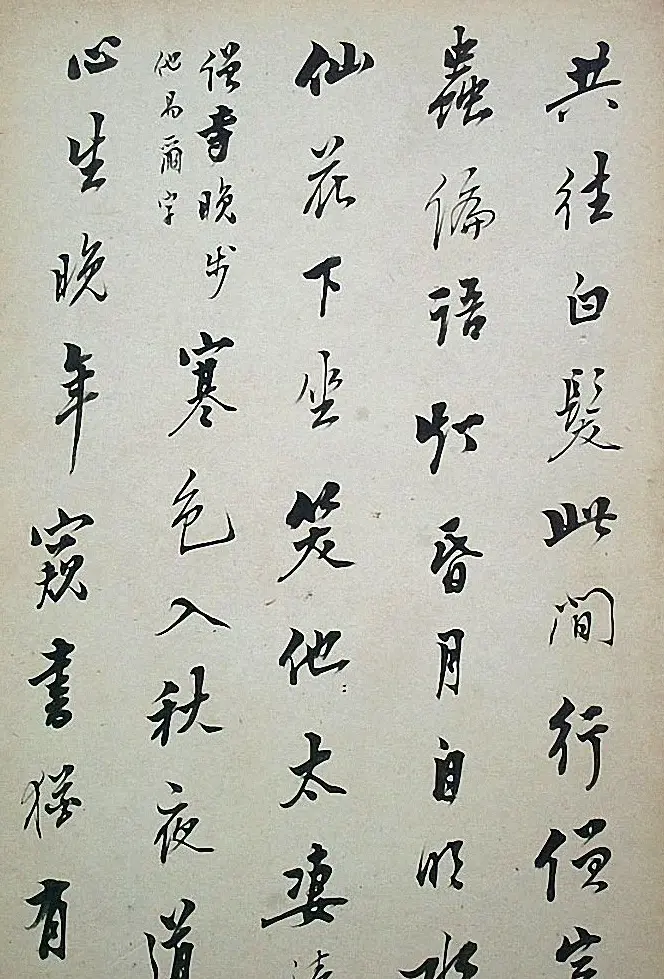 共往白髮此間行僧寂
蟲偏語灯昏月自明水
仙花下坐笑他太凄清
僧寺晚步
他易爾字
寒色入秋夜道
心生晚年窺書猶有